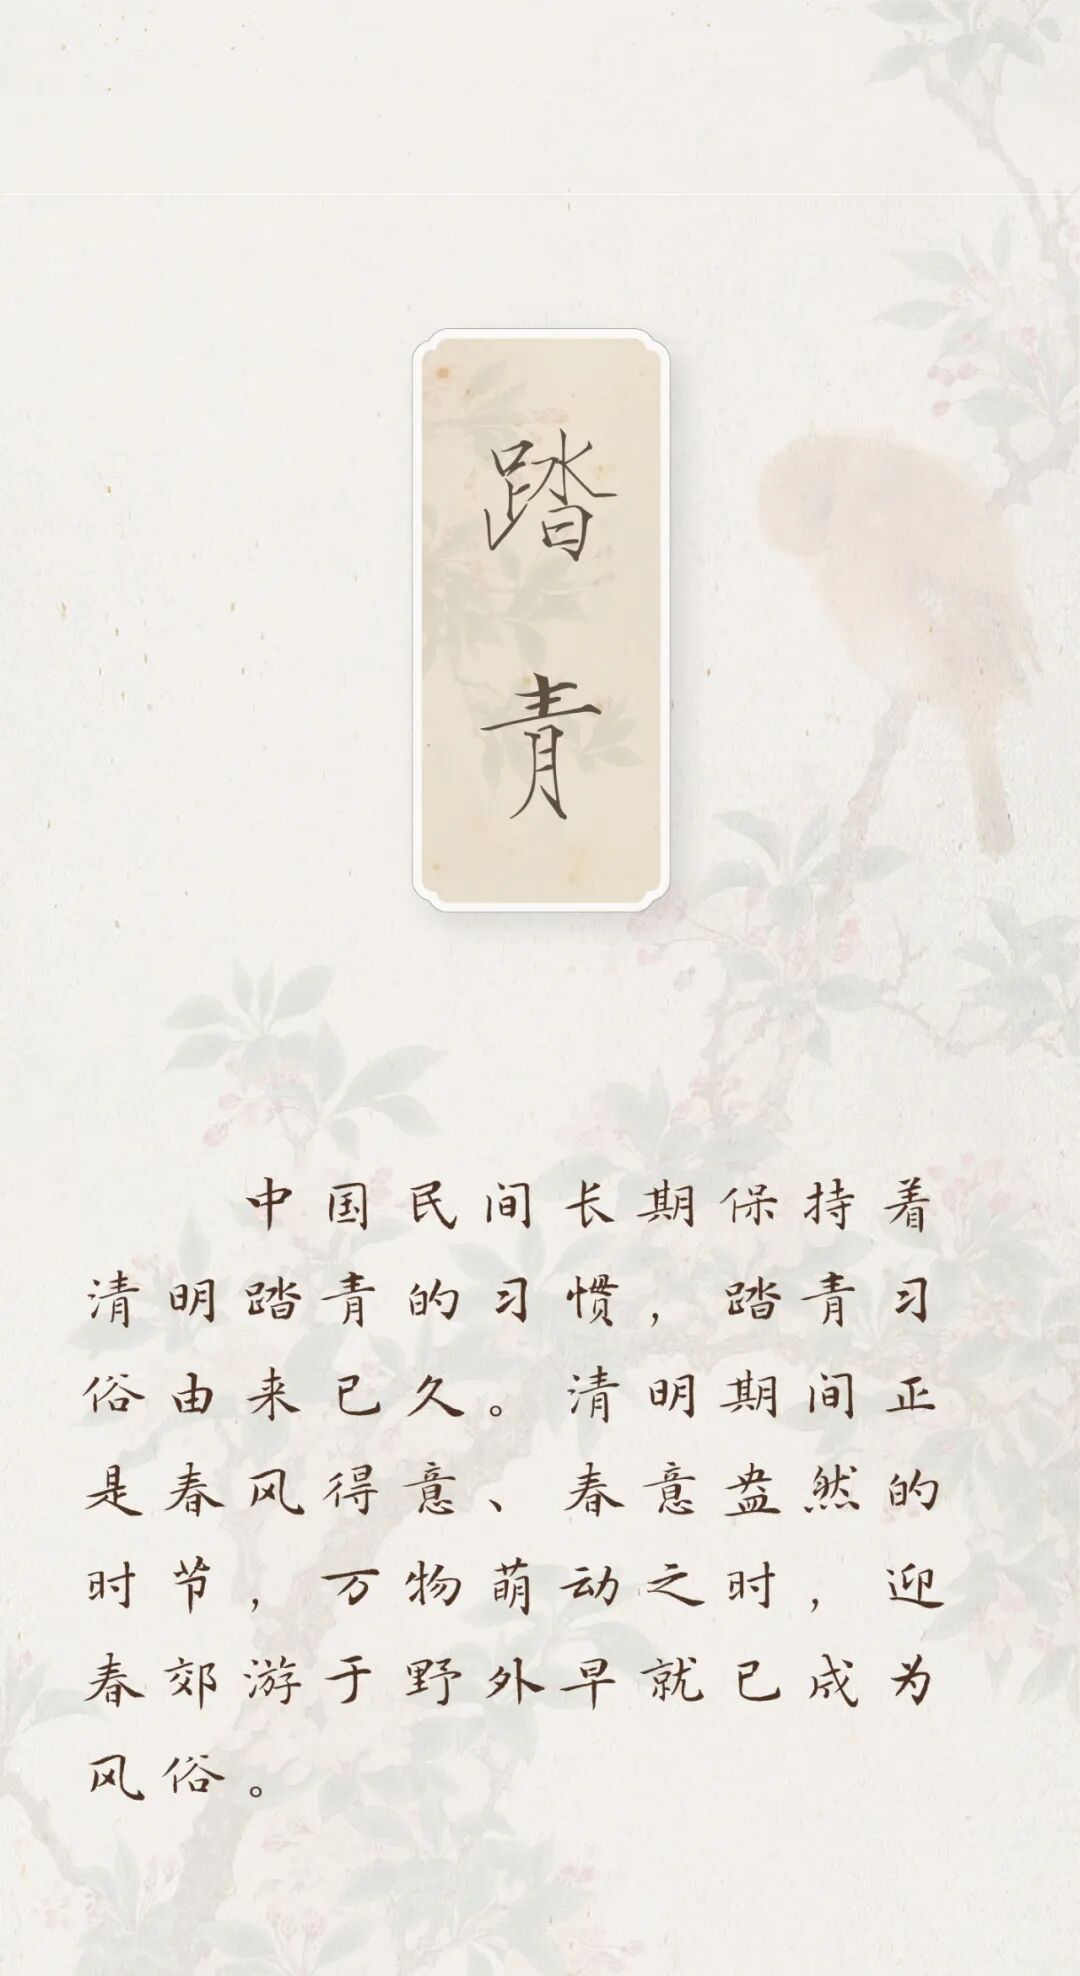 踏青
中国民间长期保持着
清明踏青的习惯，踏青习
俗由来已久。清明期间正
是春风得意、春意盎然的
时节，万物萌动之时，迎
春郊游于野外早就已成为
风俗。